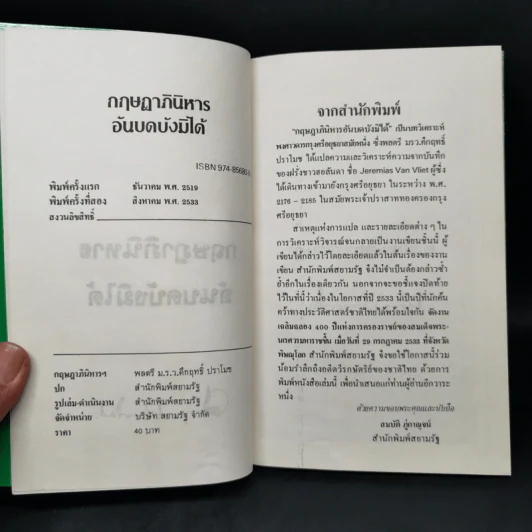 กฤษฎาภินิหาร
อันบดบังมิได้
ISBN 974-85680-
พิมพ์ครั้งแรก ธันวาคม พ.ศ. 2519
พิมพ์ครั้งที่สอง สิงหาคม พ.ศ. 2533
สงวนลิขสิทธิ์
กฤษฎาภินิหารฯ พลตรี ม.ร.ว.คึกฤทธิ์ ปราโมช
ปก สำนักพิมพ์สยามรัฐ
รูปเล่ม-ดำเนินงาน สำนักพิมพ์สยามรัฐ
จัดจำหน่าย บริษัท สยามรัฐ จำกัด
ราคา 40 บาท
จากสำนักพิมพ์
"กฤษฎาภินิหารอันบดบังมิได้" เป็นบทวิเคราะห์
พงศาวดารกรุงศรีอยุธยาสมัยหนึ่ง ซึ่งพลตรี ม.ร.ว.คึกฤทธิ์
ปราโมช ได้แปลความและวิเคราะห์ความจากบันทึก
ของฝรั่งชาวฮอลันดา ชื่อ Jeremias Van Vliet ผู้ซึ่ง
ได้เดินทางเข้ามายังกรุงศรีอยุธยา ในระหว่าง พ.ศ.
2176 – 2185 ในสมัยพระเจ้าปราสาททองครองกรุง
ศรีอยุธยา
สาเหตุแห่งการแปล และรายละเอียดต่าง ๆ ใน
การวิเคราะห์วิจารณ์จนกลายเป็นงานเขียนชิ้นนี้ ผู้
เขียนได้กล่าวไว้โดยละเอียดแล้วในต้นเรื่องของงาน
เขียน สำนักพิมพ์สยามรัฐ จึงไม่จำเป็นต้องกล่าวซ้ำ
ย้ำอีกในเรื่องเดียวกัน นอกจากจะขอชี้แจงปิดท้าย
ไว้ในที่นี้ว่าเนื่องในโอกาสที่ปี 2533 นี้เป็นปีที่นักค้น
คว้าทางประวัติศาสตร์ชาติไทยได้พร้อมใจกัน จัดงาน
เฉลิมฉลอง 400 ปีแห่งการครองราชย์ของสมเด็จพระ
นเรศวรมหาราชขึ้น เมื่อวันที่ 29 กรกฎาคม 2533 ที่จังหวัด
พิษณุโลก สำนักพิมพ์สยามรัฐ จึงขอใช้โอกาสนี้ร่วม
น้อมรำลึกถึงอดีตวีรกษัตริย์ของชาติไทย ด้วยการ
พิมพ์หนังสือเล่มนี้ เพื่อนำเสนอแก่ท่านผู้อ่านอีกวาระ
หนึ่ง
ด้วยความขอบพระคุณและนับถือ
สมบัติ ภู่กาญจน์
สำนักพิมพ์สยามรัฐ